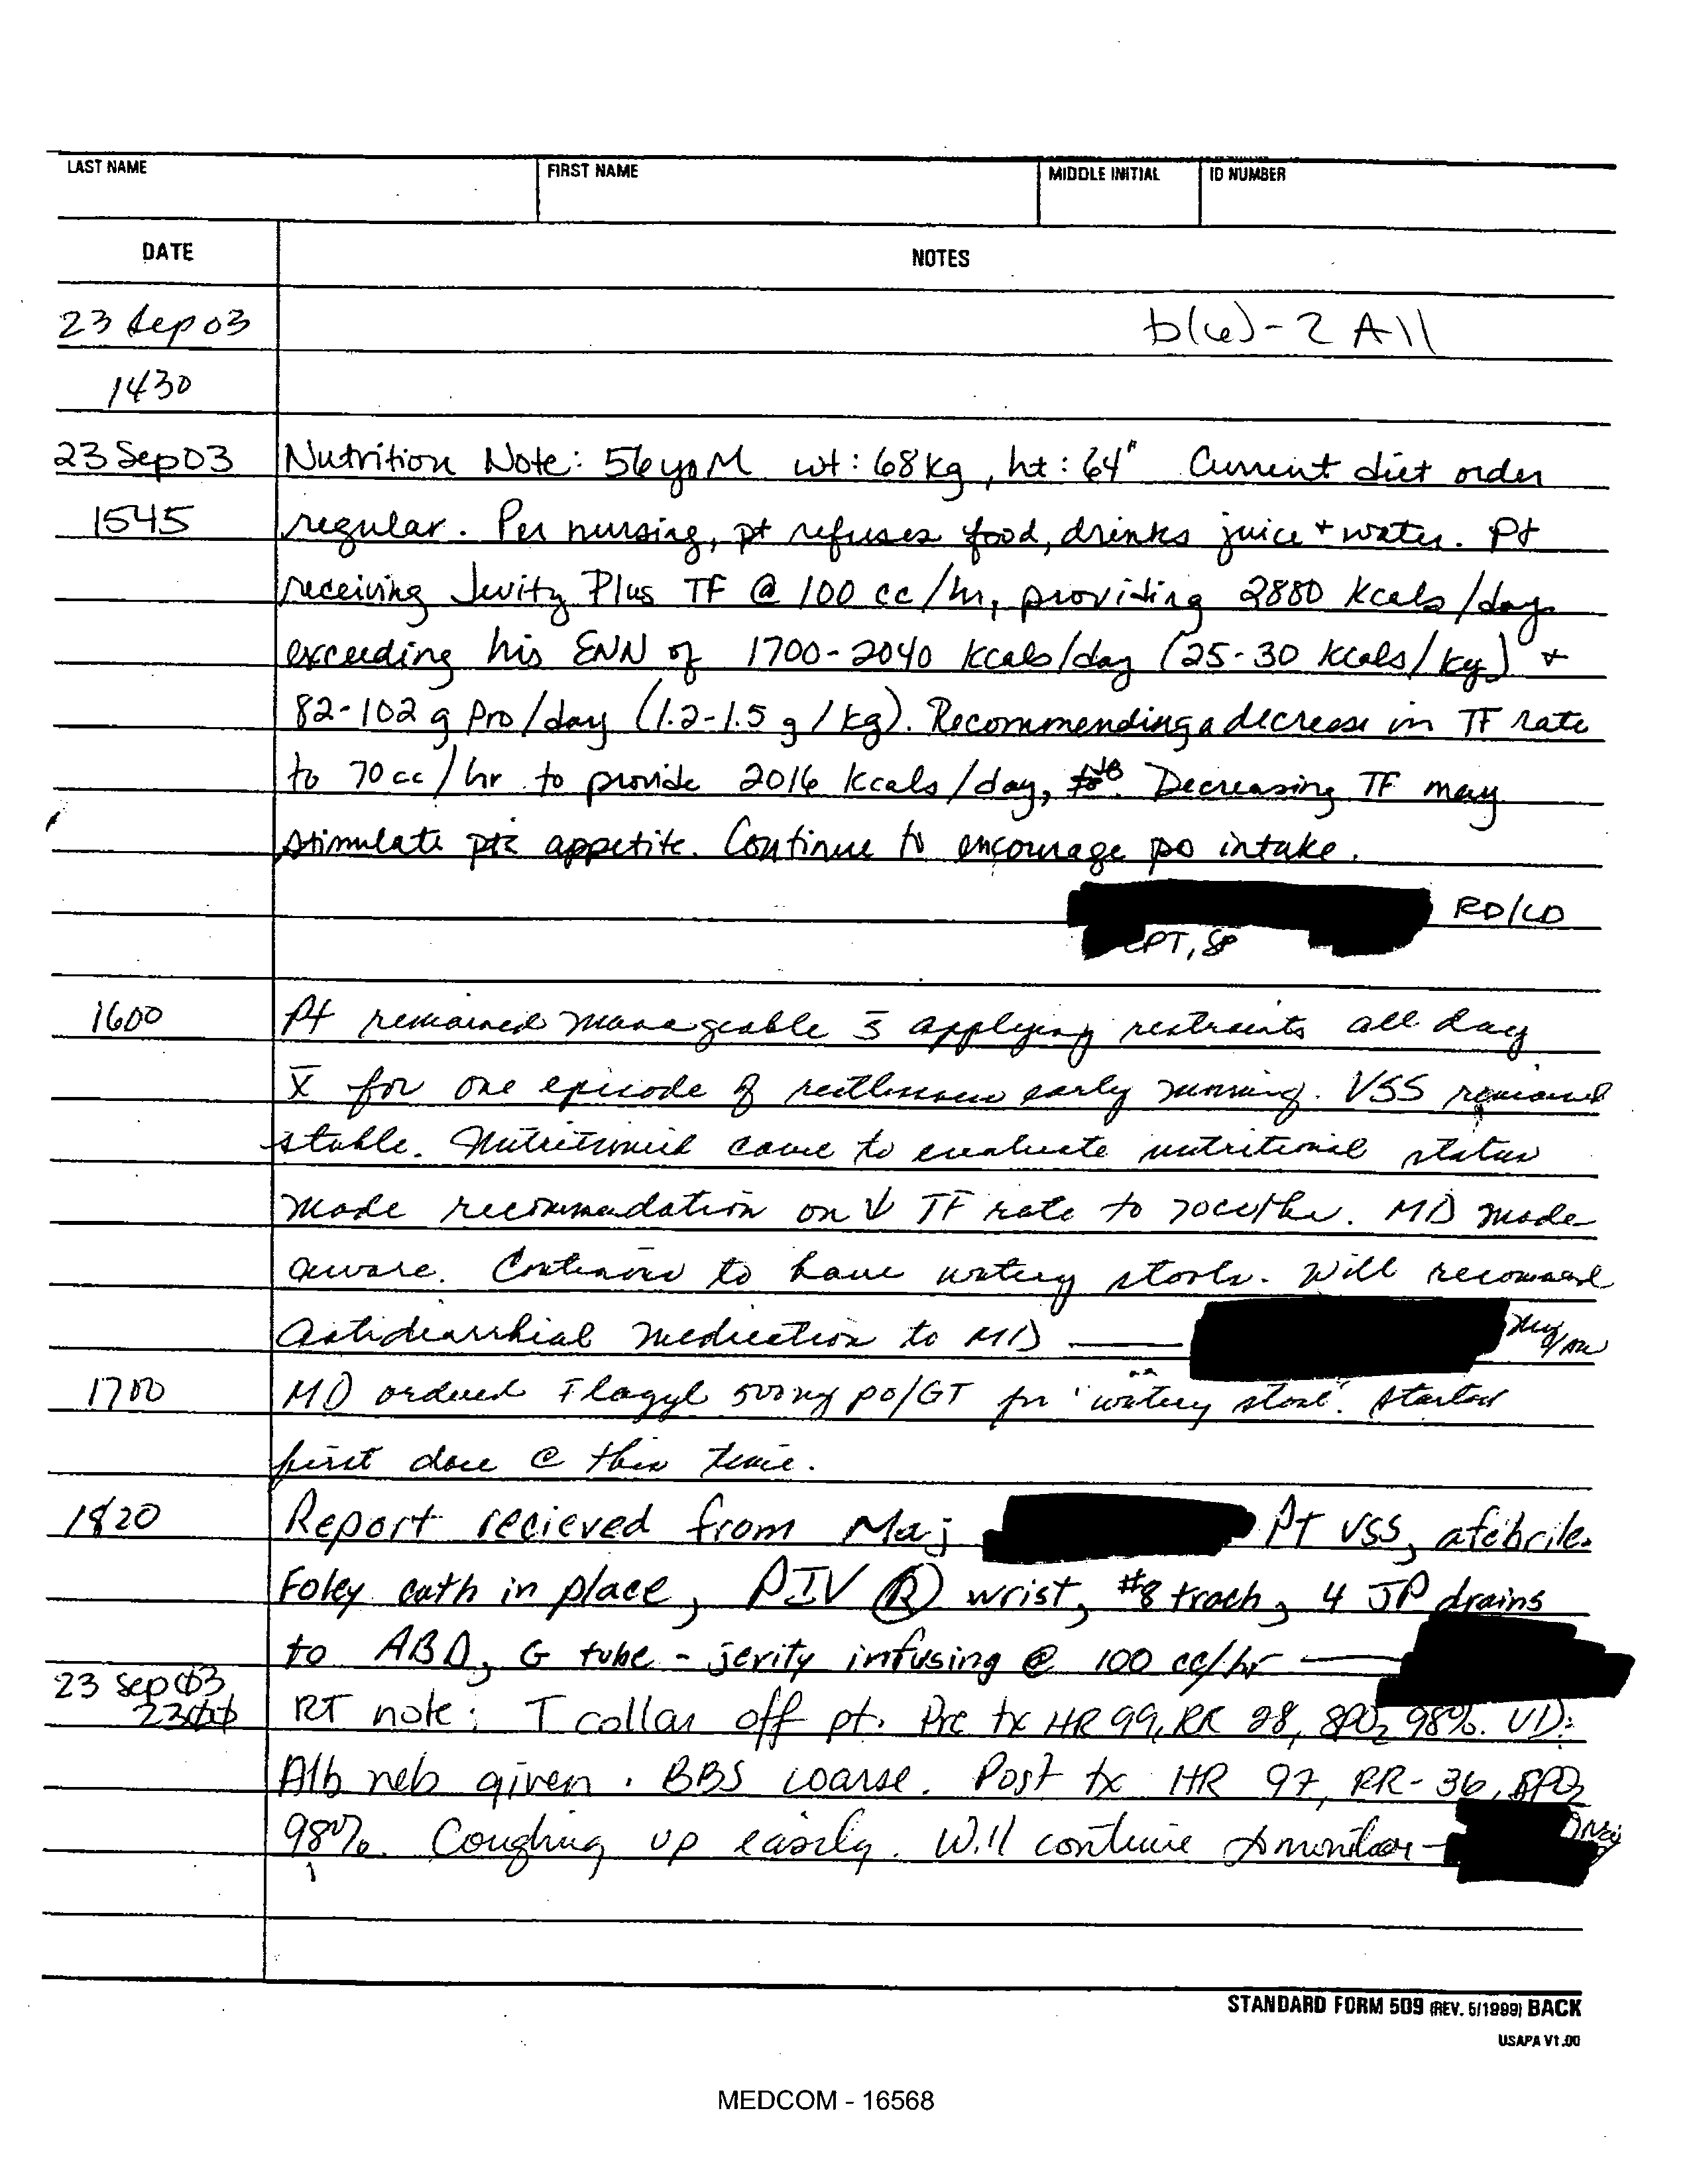 LAST NAME FIRST NAME MIDDLE INITIAL ID NUMBER
DATE NOTES
23 Sep 03 b(6)-2 All
1430
23 Sep 03 Nutrition Note: 56yoM wt: 68kg, ht: 64" Current diet order
1545 regular. Per nursing, pt refuses food, drinks juice + water. Pt
receiving Jevity Plus TF @ 100 cc/hr, providing 2880 kcals/day
exceeding his ENN of 1700-2040 kcals/day (25-30 kcals/kg) +
82-102 g Pro/day (1.2-1.5 g/kg). Recommending a decrease in TF rate
to 70cc/hr to provide 2016 kcals/day, Decreasing TF may
stimulate pts appetite. Continue to encourage po intake.
RD/LD
CPT, SP
1600 Pt remained manageable s̄ applying restraints all day
x̄ for one episode of restlessness early morning. VSS remained
stable. Nutritionist came to evaluate nutritional status
made recommendation on ↓ TF rate to 70cc/hr. MD made
aware. Continues to have watery stools. Will recommend
Antidiarrhial medication to MD
1700 MD ordered Flagyl 500mg po/GT for "watery stool". Started
first dose @ this time.
1820 Report recieved from Maj Pt VSS, afebrile.
Foley cath in place, PIV Ⓡ wrist, #8 trach, 4 JP drains
to ABD, G tube - jevity infusing @ 100 cc/hr
23 Sep 03 RT note: T collar off pt. Pre tx HR 99, RR 28, SPO2 98%. UD:
2300 Alb neb given. BBS coarse. Post tx HR 97, RR-36, SPO2
98%. Coughing up easily. Will continue to monitor
STANDARD FORM 509 (REV. 5/1999) BACK
USAPA V1.00
MEDCOM - 16568